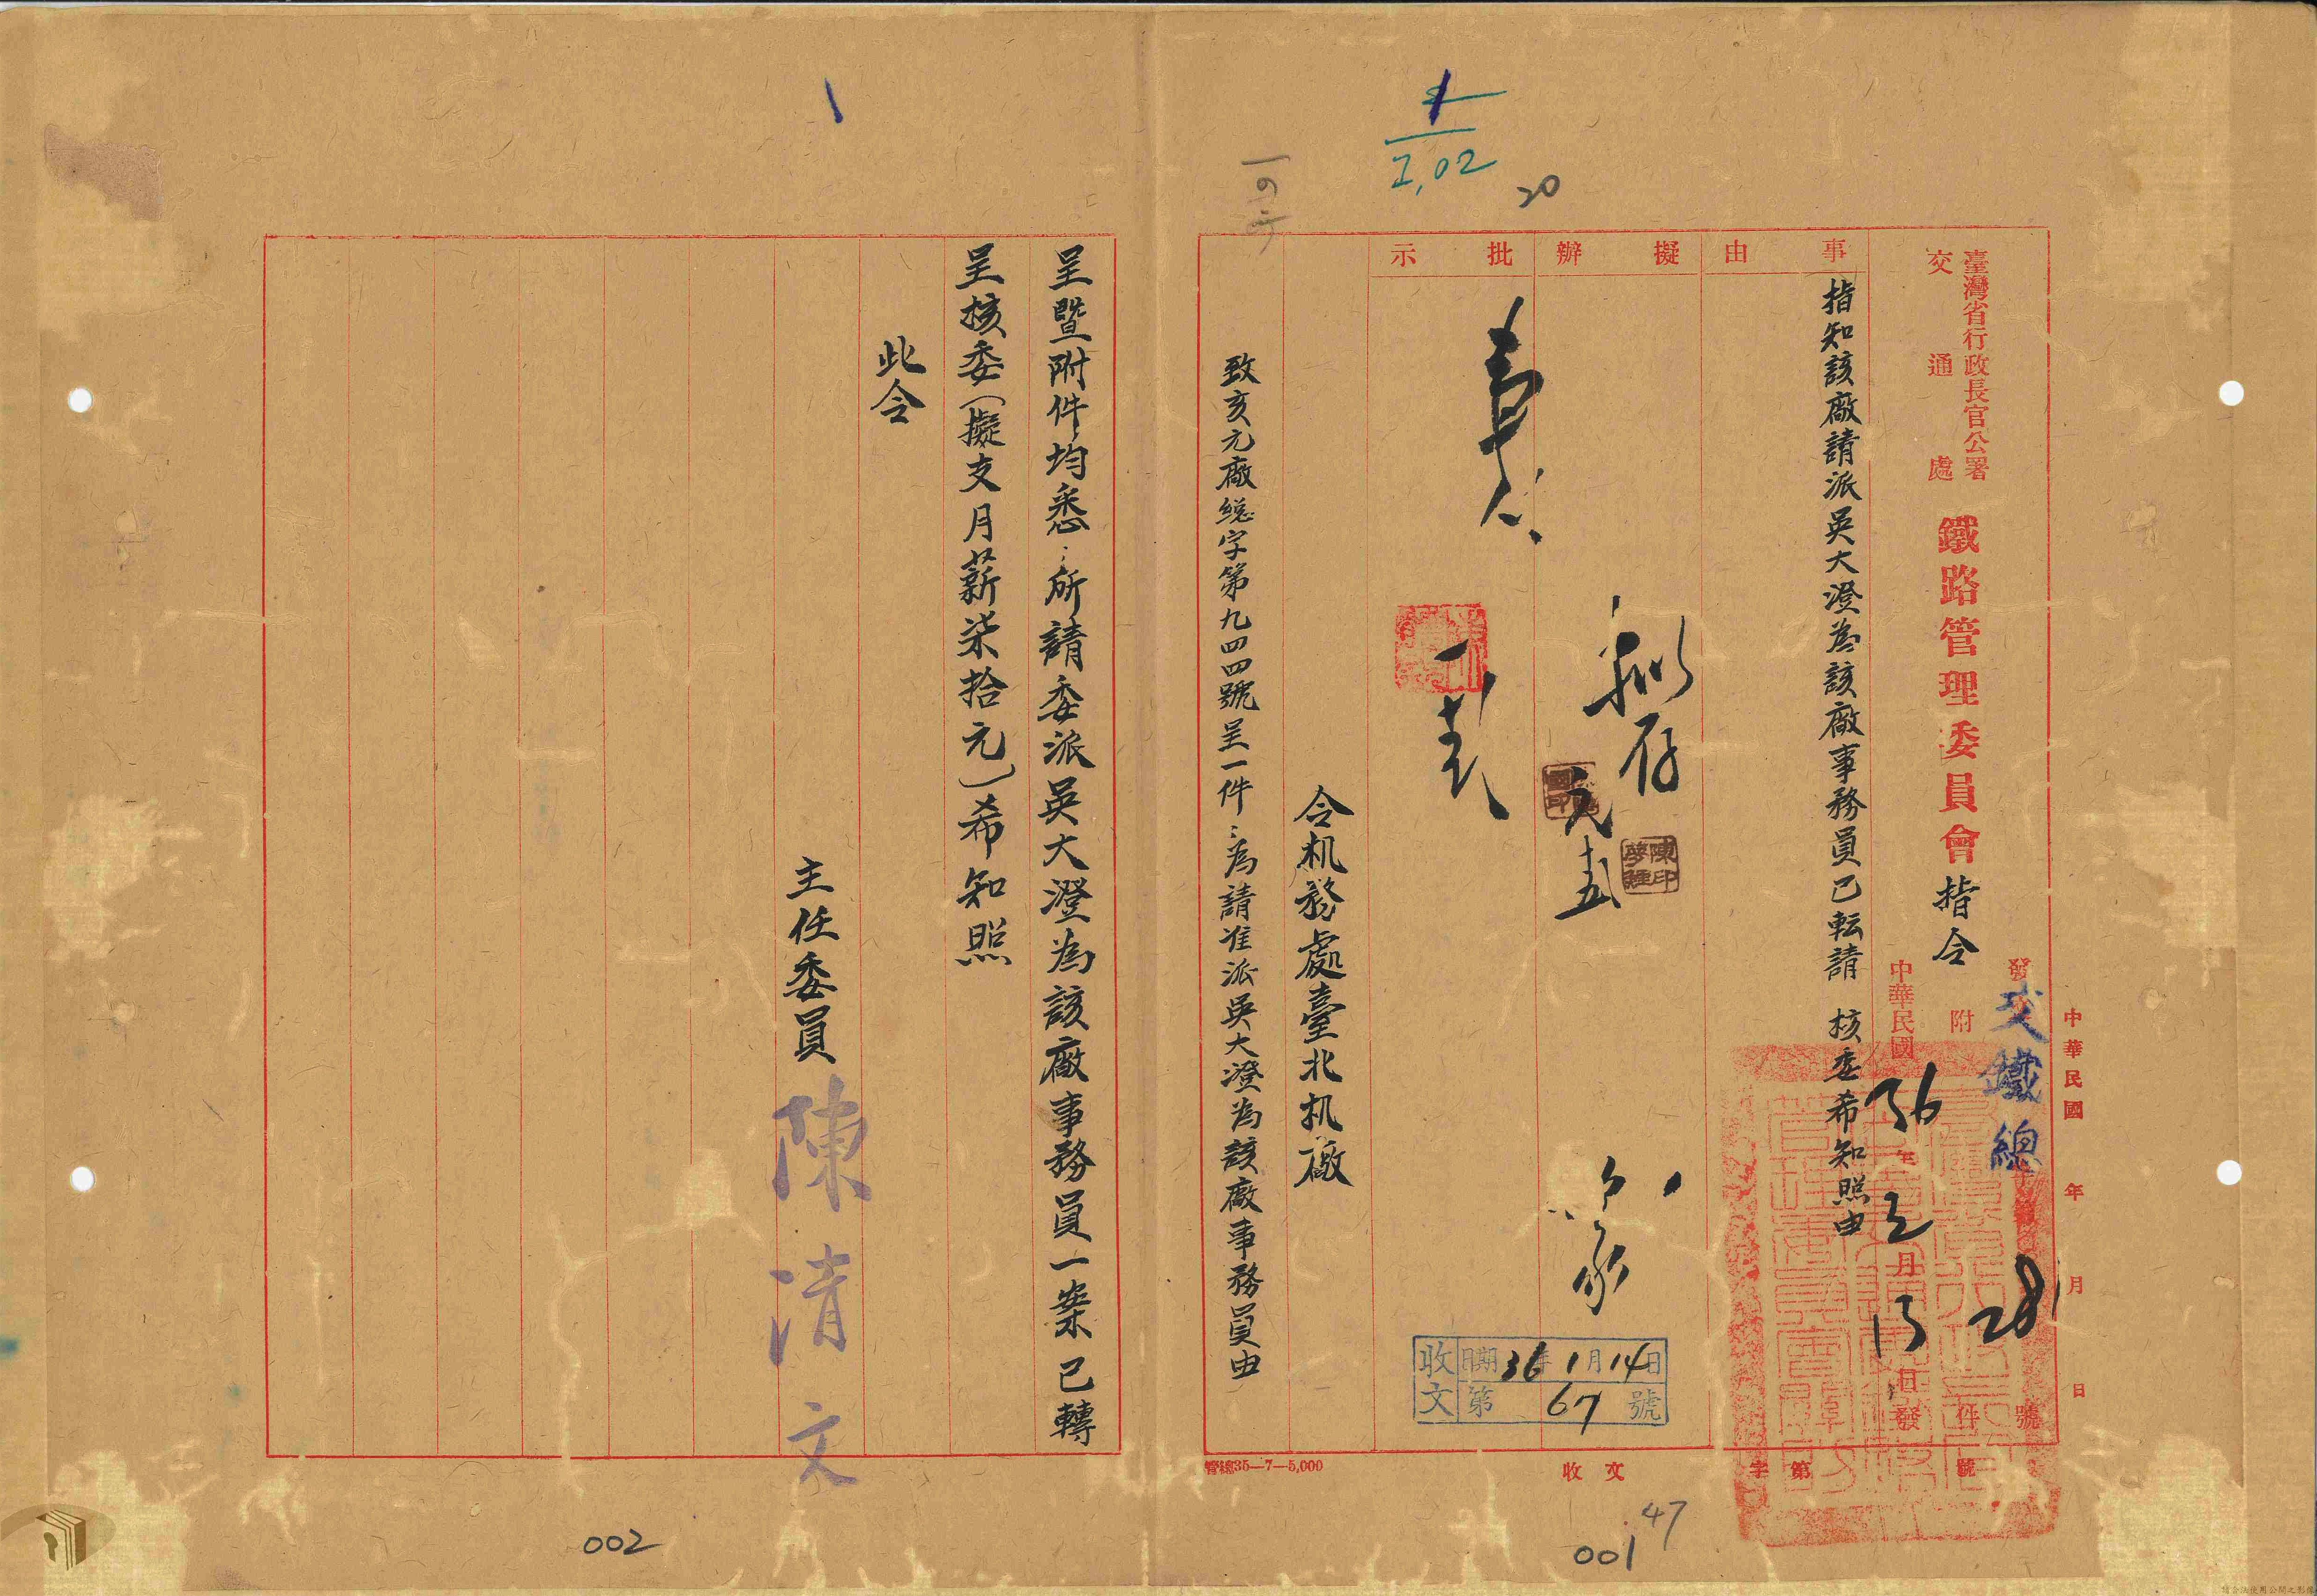 中華民國 年 月 日
臺灣省行政長官公署
交通處
鐵路管理委員會指令
發文交鐵總字第28號
附件
中華民國36年1月13日發
事由
指知該廠請派吳大澄為該廠事務員已転請 核委希知照由
擬辦
擬存
元
陳印
批示
令机務處臺北机廠
致亥元廠總字第九四四號呈一件：為請准派吳大澄為該廠事務員由
呈暨附件均悉：所請委派吳大澄為該廠事務員一案已轉
呈核委（擬支月薪柒拾元）希知照
此令
主任委員 陳清文
收文
日期36年1月14日
第67號
收文 字第 號
管總35—7—5,000
1
20
47
001
002